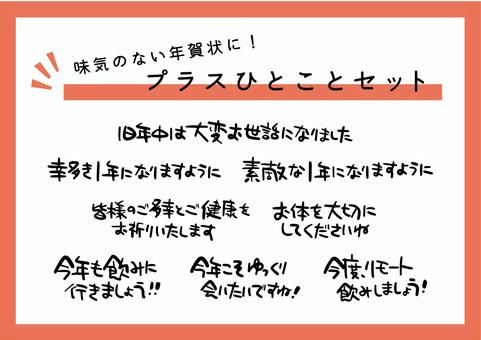 味気のない年賀状に！
プラスひとことセット
旧年中は大変お世話になりました
幸多き1年になりますように
素敵な1年になりますように
皆様のご多幸とご健康を
お祈りいたします
お体を大切に
してくださいね
今年も飲みに
行きましょう!!
今年こそゆっくり
会いたいですね!
今度リモート
飲みしましょう!